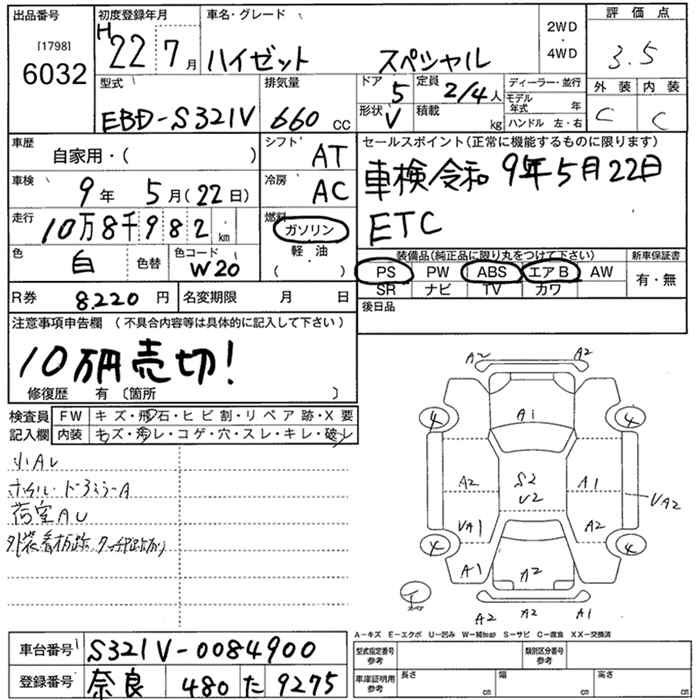 出品番号
[1798]
6032
初度登録年月
H 22年7月
車名・グレード
ハイゼット スペシャル
2WD
・
4WD
評価点
3.5
型式
EBD-S321V
排気量
660 CC
ドア 5
定員 2/4人
形状 V
積載 kg
ディーラー・並行
モデル年式 年
ハンドル 左・右
外装 内装
C C
車歴
自家用・( )
シフト AT
車検 9年 5月(22日)
冷房 AC
走行 10万8千982 km
燃料
ガソリン
軽油
( )
色 白 色替
色コード W20
R券 8220円 名変期限 月 日
セールスポイント(正常に機能するものに限ります)
車検令和9年5月22日
ETC
装備品(純正品に限り丸をつけて下さい)
新車保証書
PS PW ABS エアB AW
SR ナビ TV カワ
有・無
後日品
注意事項申告欄 (不具合内容等は具体的に記入して下さい)
10万円売切!
修復歴 有 〔箇所 〕
検査員 FW キズ・飛石・ヒビ割・リペア跡・X要
記入欄 内装 キズ・汚レ・コゲ・穴・スレ・キレ・破レ
小AU
荷室AU
A2 A2
A1
4 4
A2 S2 A1
V2 VA2
VA1 A2
4 4
A1 A2
A2 A2 A1
A-キズ E-エクボ U-凹み W-補(wap) S-サビ C-腐食 XX-交換済
車台番号 S321V-0084900
登録番号 奈良 480 た 9275
型式指定番号
参考
類別区分番号
参考
車庫証明用
参考
長さ cm 幅 cm 高さ cm